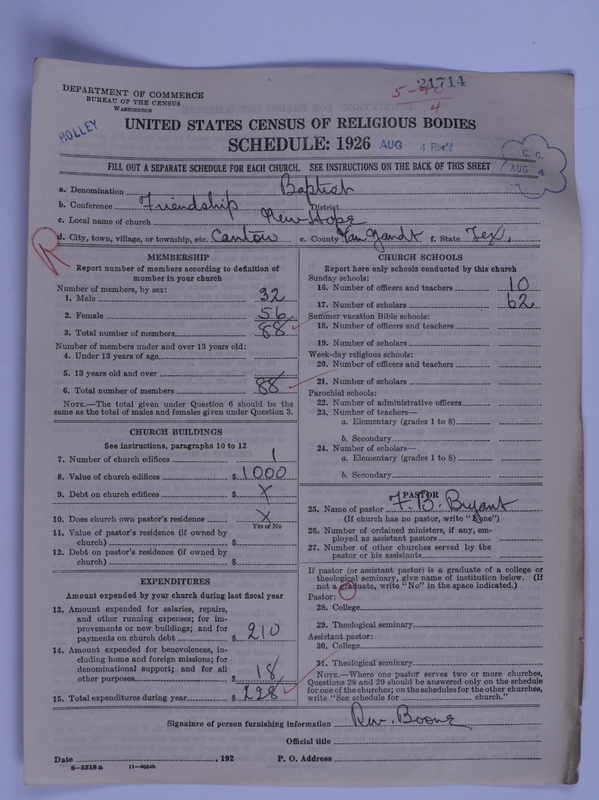 21714
DEPARTMENT OF COMMERCE
BUREAU OF THE CENSUS
WASHINGTON
HOLLEY
UNITED STATES CENSUS OF RELIGIOUS BODIES
SCHEDULE: 1926
AUG 4 Rec'd
G. C.
AUG 4
FILL OUT A SEPARATE SCHEDULE FOR EACH CHURCH. SEE INSTRUCTIONS ON THE BACK OF THIS SHEET
a. Denomination Baptist
b. Conference Friendship District
c. Local name of church New Hope
R
d. City, town, village, or township, etc. Canton e. County Van Zandt f. State Tex.
MEMBERSHIP
Report number of members according to definition of
member in your church
Number of members, by sex:
1. Male 32
2. Female 56
3. Total number of members 88
Number of members under and over 13 years old:
4. Under 13 years of age
5. 13 years old and over
6. Total number of members 88
NOTE.—The total given under Question 6 should be the
same as the total of males and females given under Question 3.
CHURCH BUILDINGS
See instructions, paragraphs 10 to 12
7. Number of church edifices 1
8. Value of church edifices $ 1000
9. Debt on church edifices $ X
10. Does church own pastor's residence X
Yes or No
11. Value of pastor's residence (if owned by
church) $
12. Debt on pastor's residence (if owned by
church) $
EXPENDITURES
Amount expended by your church during last fiscal year
13. Amount expended for salaries, repairs,
and other running expenses; for im-
provements or new buildings; and for
payments on church debt $ 210
14. Amount expended for benevolences, in-
cluding home and foreign missions; for
denominational support; and for all
other purposes $ 18
15. Total expenditures during year $ 228
CHURCH SCHOOLS
Report here only schools conducted by this church
Sunday schools:
16. Number of officers and teachers 10
17. Number of scholars 62
Summer vacation Bible schools:
18. Number of officers and teachers
19. Number of scholars
Week-day religious schools:
20. Number of officers and teachers
21. Number of scholars
Parochial schools:
22. Number of administrative officers
23. Number of teachers—
a. Elementary (grades 1 to 8)
b. Secondary
24. Number of scholars—
a. Elementary (grades 1 to 8)
b. Secondary
PASTOR
25. Name of pastor F. B. Bryant
(If church has no pastor, write "None")
26. Number of ordained ministers, if any, em-
ployed as assistant pastors
27. Number of other churches served by the
pastor or his assistants
If pastor (or assistant pastor) is a graduate of a college or
theological seminary, give name of institution below. (If
not a graduate, write "No" in the space indicated.)
Pastor:
28. College
29. Theological seminary
Assistant pastor:
30. College
31. Theological seminary
NOTE.—Where one pastor serves two or more churches,
Questions 28 and 29 should be answered only on the schedule
for one of the churches; on the schedules for the other churches,
write "See schedule for church."
Signature of person furnishing information Rev. Boone
Official title
Date , 192 P. O. Address
8-5318a 11-9054b